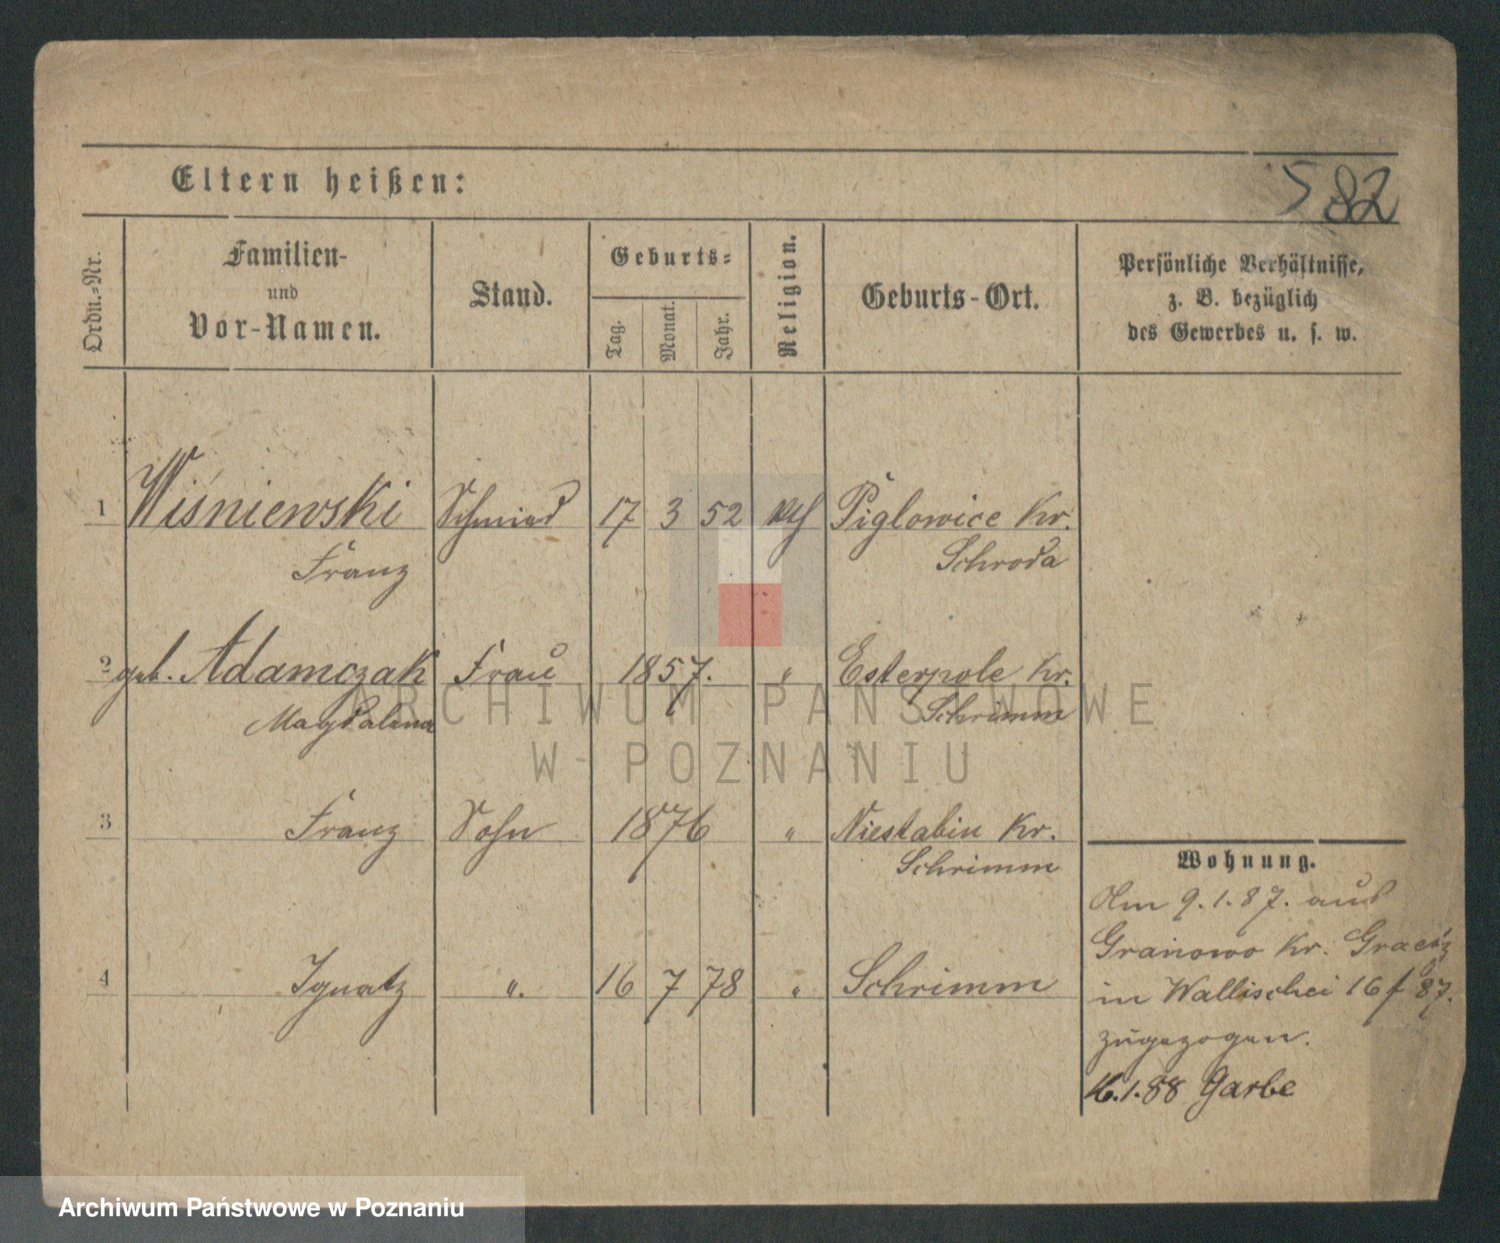 Eltern heißen:
582
Ordn.-Nr.
Familien-
und
Vor-Namen.
Stand.
Geburts-
Tag.
Monat.
Jahr.
Religion.
Geburts-Ort.
Persönliche Verhältnisse,
z. B. bezüglich
des Gewerbes u. s. w.
1 Wiśniewski Schmied 17 3 52 kth Piglowice Kr.
Franz Schroda
2 geb. Adamczak Frau 1857. " Esterpole Kr.
Magdalena Schrimm
3 Franz Sohn 1876 " Niestabin Kr.
Schrimm
4 Ignatz ". 16 7 78 " Schrimm
Wohnung.
Am 9.1.87. aus
Granowo Kr. Graetz
in Wallischei 16 87.
zugezogen.
16.1.88 Garbe
ARCHIWUM PAŃSTWOWE
W POZNANIU
Archiwum Państwowe w Poznaniu